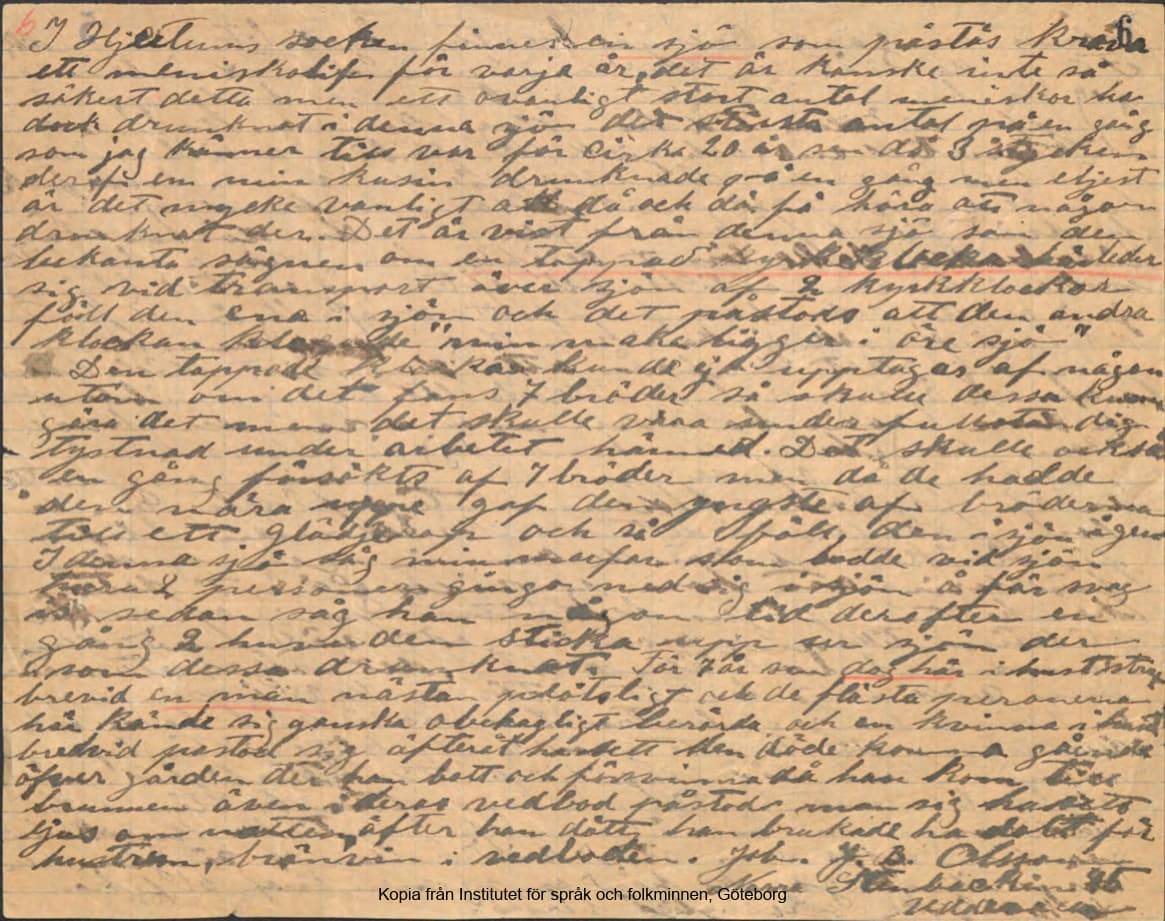 6 6
I Hjertums socken finnes en sjö som påstås kräva
ett meniskolif för varje år, det är kanske inte så
säkert detta men ett ovanligt stort antal meniskor ha
dock drunknat i denna sjö det största antal på en gång
som jag känner till var för cirka 20 år sen då 3 stycken
deraf en min kusin drunknade på en gång men eljest
är det mycke vanligt att då och då få höra att någon
drunknat der. Det är vist från denna sjö som den
bekanta sägnen om en tappad kyrkklocka härleder
sig vid transport över sjön af 2 kyrkklockor
föll den ena i sjön och det påstods att den andra
klockan "min maka ligger i Öre sjö"
Den tappade klockan kunde ej upptagas af någon
utom om det fans 7 bröder så skulle dessa kunna
göra det men det skulle vara under fullständig
tystnad under arbetet härmed. Det skulle också
en gång försökts af 7 bröder men då de hadde
den nära uppe gaf den yngste af bröderna
till ett glädjerop och så föll den i sjön igen
I denna sjö såg min morfar som bodde vid sjön
2 personer gingo ned sig i sjön å för svag
is sedan såg han någon tid derefter en
gång 2 huvuden sticka upp ur sjön der
som dessa drunknat. För 7 år sen dog här i
brevid en man nästan plötsligt och de flästa personerna
här kände sig ganska obehagligt berörda och en kvinna i
bredvid påstod sig äfteråt ha sett den döde komma gående
öfver gården der han bott och försvinna då han kom till
brunnen även i deras vedbod påstods man sig ha sett
ljus om natten äfter han dött, han brukade ha dolt för
hustrun, bränvin i vedboden. J. E. Olsson

Kopia från Institutet för språk och folkminnen, Göteborg